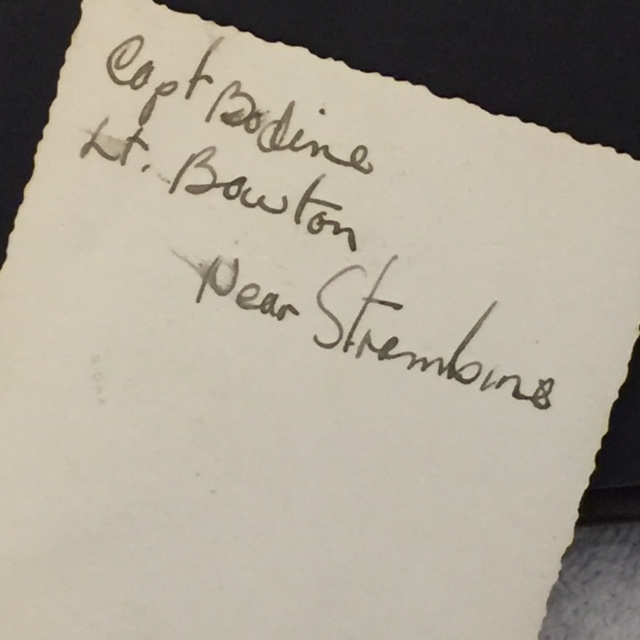 Capt Bodine
Lt. Bowton
Near Strembine